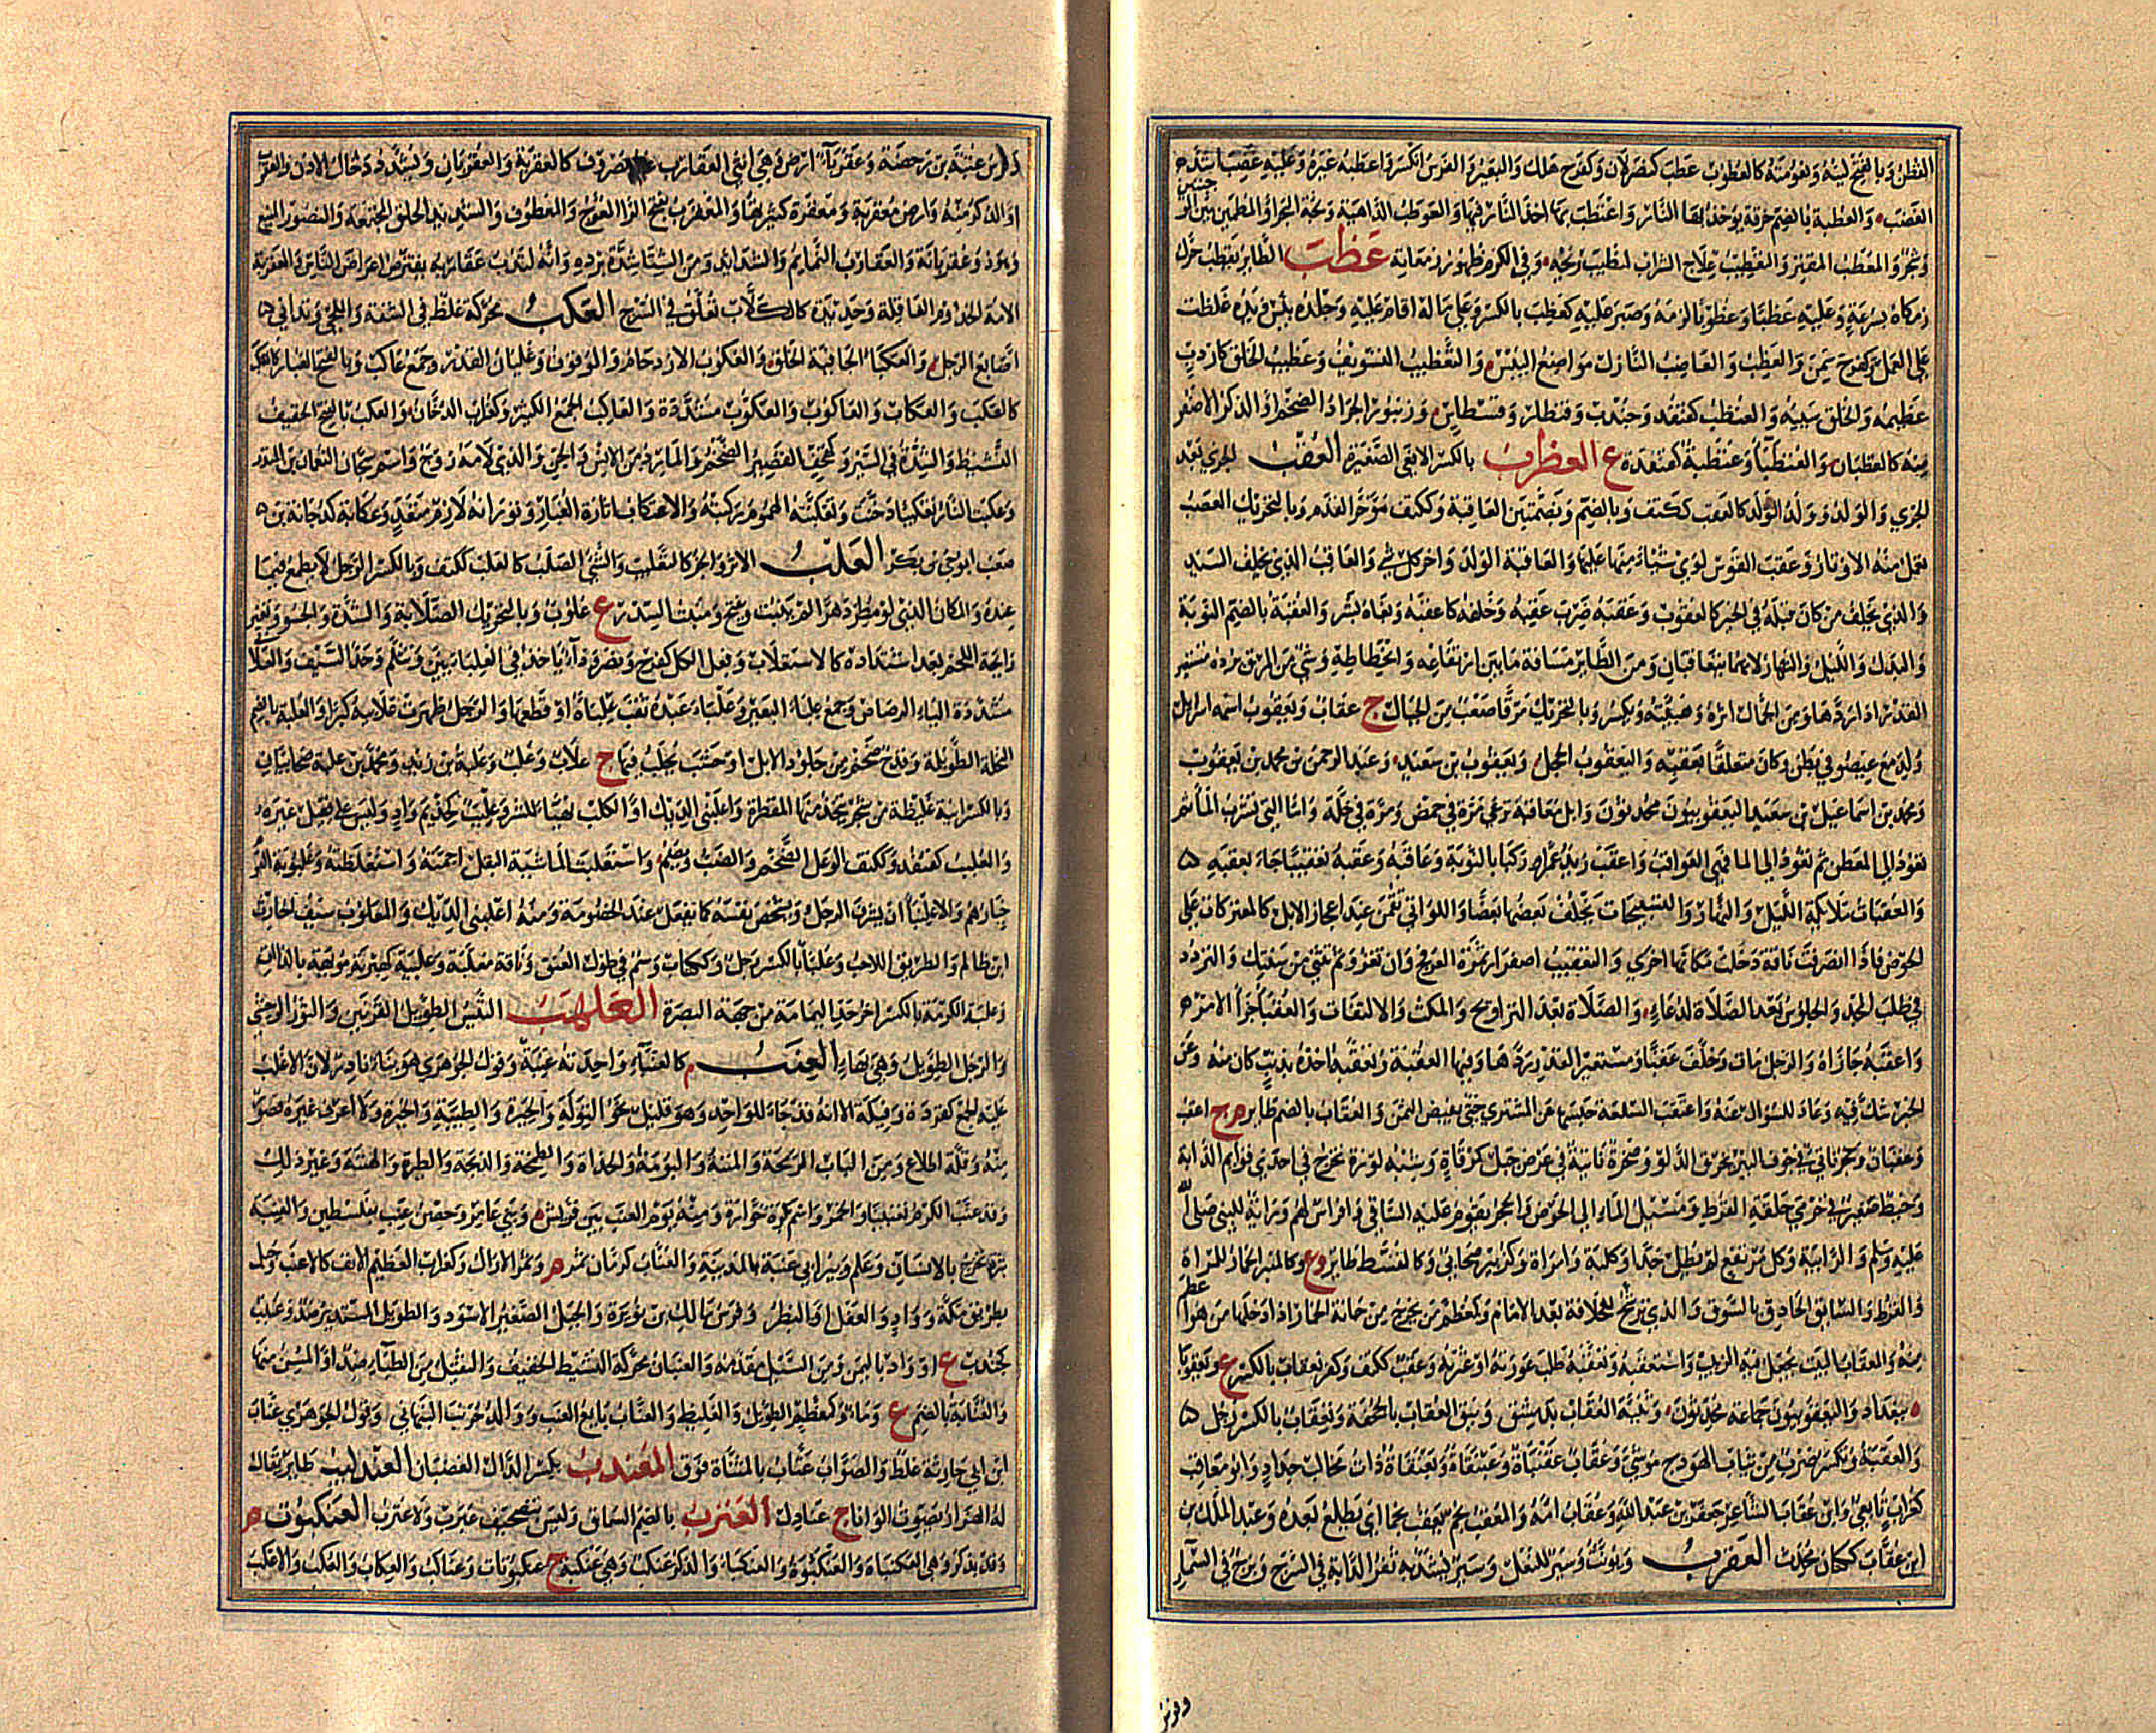 القطن وبالفتح لينه ونعومته كالعطوب عطب كنصر لان وكفرح هلك والبعير والفرس انكسر واعطبه غيره وعليه غضب اشد
الغضب والعطبة بالضم خرقة يوخذ بها النار واعتطب بها اخذ النار فيها والعوطب الداهية ولجة البحر والمطمئن بين الموجتين
والمعطب المقتر والتعطيب علاج الشراب لتطيب ريحه وفي الكرم ظهور زمعاته عظب الطاير يعظب حرك
زمكاه بسرعة وعليه عظبا وعظوبا لزمه وصبر عليه كعظب بالكسر وعلى ماله اقام عليه وجلده يبس ويده غلظت
على العمل وكفرح سمن والعظب والعاظب النازل مواضع اليبس والتعظيب التسويف وعظيب الخلق كاردب
عظيمه والخلق سييه والعنظب كقنفد وجندب وقنطار وقسطاس وزنبور الجراد الضخم او الذكر الاصفر
منه كالعظبان والعنظباء وعنظبة كقنفدة ع العظرب بالكسر الافعى الصغيرة العقب الجري بعد
الجري والولد وولد الولد كالعقب ككتف وبالضم وبضمتين العاقبة وككتف موخر القدم وبالتحريك العصب
تعمل منه الاوتار وعقب القوس لوى شيا منها عليها والعاقبة الولد واخر كل شي والعاقب الذي يخلف السيد
والذي يخلف من كان قبله في الخير كالعقوب وعقبه ضرب عقبه وخلفه كاعقبه وبغاه بشر والعقبة بالضم النوبة
والبدل والليل والنهار لانهما يتعاقبان ومن الطاير مسافة ما بين ارتفاعه وانحطاطه وشي من المرق يرده مستعير
القدر اذا ردها ومن الجمال اثره وهيته ويكسر وبالتحريك مرقا صعب من الجبال ج عقاب ويعقوب اسمه اسرايل
ولد مع عيصو في بطن وكان متعلقا بعقبه واليعقوب الحجل ويعقوب بن سعيد وعبد الرحمن بن محمد بن يعقوب
ومحمد بن اسماعيل بن سعيد اليعقوبيون محدثون وابل معاقبة ترعى مرة في حمض ومرة في خلة واما التي تشرب الماء ثم
تعود الى المعطن ثم تعود الى الما فهي العواقب واعقب زيد عمرا ركبا بالنوبة وعاقبه وعقبه تعقيبا جاء بعقبه
والمعقبات ملايكة الليل والنهار والتسبيحات يخلف بعضها بعضا واللواتي يقمن عند اعجاز الابل المعتركات على
الحوض فاذا انصرفت ناقة دخلت مكانها اخرى والتعقيب اصفرار ثمرة العرفج وان تغزو ثم تثني من سنتك والتردد
في طلب المجد والجلوس بعد الصلاة لدعاء والصلاة بعد التراويح والمكث والالتفات والعقبى جزا الامر
واعقبه جازاه والرجل مات وخلف عقبا ومستعير القدر ردها وفيها العقبة وتعقبه اخذه بذنب كان منه وعن
الخبر شك فيه وعاد للسوال عنه واعتقب السلعة حبسها عن المشتري حتى يقبض الثمن والعقاب بالضم طاير م ج اعقب
وعقبان وحجر ناتي في جوف البير يخرق الدلو وصخرة ناتية في عرض جبل كمرقاة وشبه لوزة تخرج في احدى قوايم الدابة
وخيط صغير في خرتي حلقة القرط ومسيل الماء الى الحوض والحجر يقوم عليه الساقي وافراس لهم وراية للنبي صلى الله
عليه وسلم والرابية وكل مرتفع لم يطل جدا وكلبة وامراة وكزبير صحابي وكالقبيط طاير وع وكالمنبر الخمار للمراة
والقرط والسايق الحاذق بالسوق والذي يرشح للخلافة بعد الامام وكمعظم من يخرج من حانة الخمار اذا دخلها من هو اعظم
منه والمعقاب البيت يجعل فيه الزبيب واستعقبه وتعقبه طلب عورته او عثرته وعقب ككتف وكفر تعقاب بالكسر ع ويعقوبا
ببغداد واليعقوبيون جماعة محدثون وثنية العقاب بدمشق ونيق العقاب بالجحفة وتعقاب بالكسر رجل
والعقبة وتكسر ضرب من ثياب الهودج موشى وعقاب عقنباة وعبنقاة وبعنقاة ذات مخالب حداد وابو عقاب
كغراب تابعي وابن عقاب الشاعر جعفر بن عبد الله وعقاب امه والمعقب نجم يعقب نجما اي يطلع بعده وعبد الملك بن
ابن عقاب ككتان محدث العقرب ويونث وسير للنعل وسير يشد به ثفر الدابة في السرج وبرج في السماء
وفرس
وفرس عتبة بن رحضة وعقرباء ارض وهي انثى العقارب غير مصروف كالعقربة والعقربان ويشدد دخال الاذن والعقرب
او الذكر منه وارض معقربة ومعقرة كثيرتها والمعقرب بفتح الراء المعوج والمعطوف والشديد الخلق المجتمعه والنصور المنيع
وهو ذو عقربانة والعقارب النمايم والشدايد ومن الشتا شدة برده وانه لتدب عقاربه يقترض اعراض الناس والعقربة
الامة الخدوم العاقلة وحديدة كالكلاب تعلق في السرج العكب محركة غلظ في الشفة واللحي وتداني
اصابع الرجل والعكباء الجافية الخلق والعكوب الازدحام والوقوف وغليان القدر وجمع عاكب وبالفتح الغبار كالعكب
كالعكب والعكاب والعاكوب والعكوب مشددة والعاكب الجمع الكثير وكغراب الدخان والعكب بالفتح الخفيف
النشيط والشدة في السير وكهجف القصير الضخم والمارد من الانس والجن والذي لامه زوج واسم سجان النعمان بن المنذر
وعكبت النار تعكيبا دخنت وتعكبته الهموم ركبته والاعتكاب اثارة الغبار وثورانه لازم متعد وعكابة كدخانة بن
صعب ابو حي من بكر العلب الاثر والحز كالتعليب والشي الصلب كالعلب ككتف وبالكسر الرجل لا يطمع فيما
عنده والمكان الذي لو مطر دهرا لم ينبت ويفتح ومنبت السدر ج علوب وبالتحريك الصلابة والشدة والجسو وتغير
رايحة اللحم بعد اشتداده كالاستعلاب وفعل الكل كفرح ونصر وداء ياخذ في العلباءين وتثلم حد السيف والعلابي
مشددة الياء الرصاص وجمع علباء البعير وعلباه عبده ثقب علباه او قطعها والرجل ظهرت علابيه كبرا والعلبة بالضم
النخلة الطويلة وقدح ضخم من جلود الابل او خشب يحلب فيها ج علاب وعلب وعلبة بن زيد ومحمد بن علبة صحابيان
وبالكسر ابنة غليظة من شجر يتخذ منها المقطرة واعلنبى الديك او الكلب تهيا للشر وعليب كحذيم واد وليس على فعيل غيره
والعلب كقنفد وككتف الوعل الضخم والضب ويضم واستعلبت الماشية البقل اجمته واستغلظته وعلوبة القوم
خيارهم والاعلنباء ان يشرف الرجل ويشخص نفسه كما يفعل عند الخصومة ومنه اعلنبى الديك والمعلوب سيف الحارث
ابن ظالم والطريق اللاحب وعلباء بالكسر رجل وككتاب وسم في طول العنق وناقة معلبة وعلبية كهنرية مويهة بالداث
وعلبة الكرمة بالكسر اخر حد اليمامة من جهة البصرة العلهب التيس الطويل القرنين والثور الوحشي
والرجل الطويل وهي بهاء العنب م كالعنباء واحدته عنبة وقول الجوهري هو بناء نادر لان الاغلب
عليه الجمع كقردة وفيلة الا انه قد جاء للواحد وهو قليل نحو التولة والحبرة والطيبة والخيرة ولا اعرف غيره قصور
منه وقلة اطلاع ومن الباب الزمخة والمننة والبومة والحداة والطمخة والذبحة والطيرة والهننة وغير ذلك
وقد عنب الكرم تعنيبا والخمر واسم بكرة خوارة ومنه يوم العنب بين قريش وبني عامر وحصن عنب بفلسطين والعنبة
بثرة تخرج بالانسان وعلم وبير ابي عنبة بالمدينة والعناب كرمان ثمر م وثمر الاراك وكغراب العظيم الانف كالاعنب وجبل
بطريق مكة وواد والعفل او البظر وفرس مالك بن نويرة والجبل الصغير الاسود والطويل المستدير ضد وعنبب
كجندب ع او واد باليمن ومن السيل مقدمه والعنبان محركة النشيط الخفيف والثقيل من الظباء ضد او المسن منها
والعنابة بالضم ع وماءة وكمعظم الطويل والغليظ والعناب بايع العنب ووالد حريث النبهاني وقول الجوهري عناب
ابن ابي حارثة غلط والصواب عتاب بالمثناة فوق المعندب بكسر الدال الغضبان العندليب طاير يقال
له الهزار يصوت الوانا ج عنادل العنزب بالضم السماق وليس بتصحيف عبرب ولا عترب العنكبوت م
وقد يذكر وهي العنكباة والعنكبوه والعنكباء والذكر عنكب وهي عنكبة ج عنكبوتات وعناكب والعكاب والعكب والاعكب